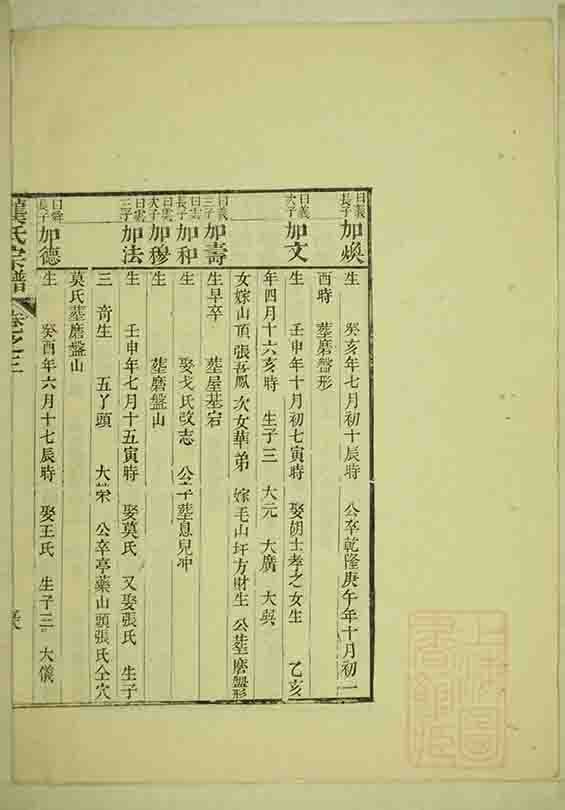 曰義長子 加煥 生 癸亥年七月初十辰時 公卒乾隆庚午年十月初一
酉時 塟磨盤形
曰義次子 加文 生 壬申年十月初七寅時 娶胡士孝之女生 乙亥
年四月十六亥時 生子三 大元 大廣 大吳
女嫁山頂張吾鳳 次女華弟 嫁毛山圩方財生 公塟磨盤形
曰義三子 加壽 生早卒 塟屋基宕
長子 加和 生 娶戈氏改志 公 塟息兒冲
次子 加穆 生 塟磨盤山
三子 加法 生 壬申年七月十五寅時 娶莫氏 又娶張氏 生子
三 奇生 五丫頭 大榮 公卒亭藥山頭張氏仝穴
莫氏塟磨盤山
長子 加德 生 癸酉年六月十七辰時 娶王氏 生子三 大儀
氏宗譜 卷之三
上海圖書館藏